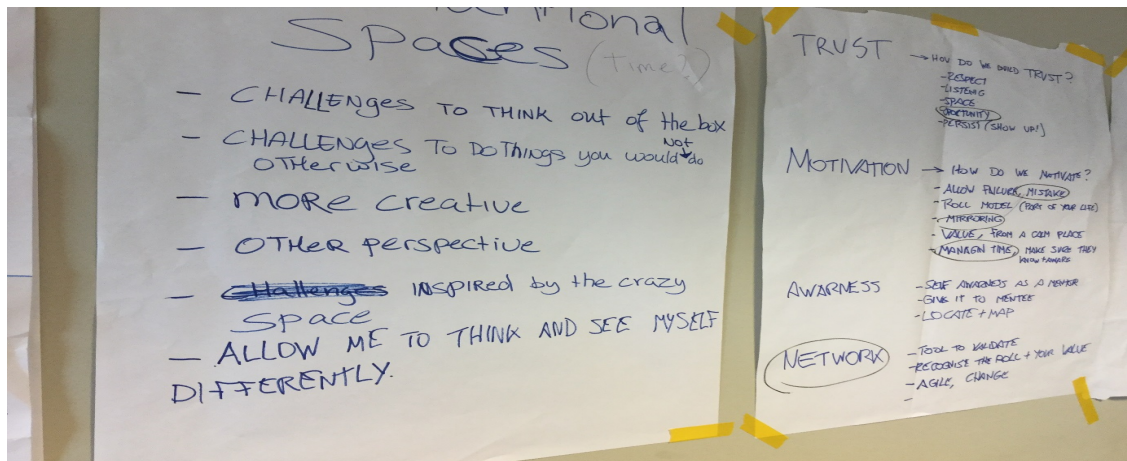 Spaces (Time?)
- CHALLENGES TO THINK OUT OF the box
- CHALLENGES TO DO THINGS you would NOT do
OTHERWISE
- MORE creative
- OTHER perspective
- Challenges INSPIRED by the crazy
SPACE
- ALLOW ME TO THINK AND SEE MYSELF
DIFFERENTLY.
TRUST
→ HOW DO WE BUILD TRUST?
- RESPECT
- LISTENIG
- SPACE
- OPORTUNITY
- PERSIST (SHOW UP!)
MOTIVATION
→ HOW DO WE MOTIVATE?
- ALLOW FAILURE, MISTAKE
- ROLL MODEL (PART OF YOUR LIFE)
- MIRRORING
- VALUE, FROM A CALM PLACE
- MANAGIN TIME, MAKE SURE THEY
KNOW + AWARE
AWARNESS
- SELF AWARNESS AS A MENTOR
- GIVE IT TO MENTEE
- LOCATE + MAP
NETWORK
- TOOL TO VALIDATE
- RECOGNISE THE ROLL + YOUR VALUE
- AGILE, CHANGE
-